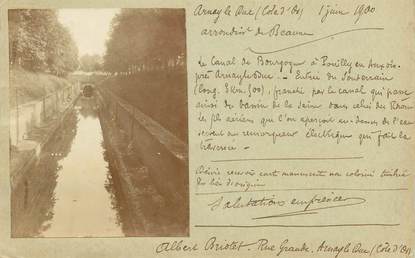 Arnay le Duc (Côte d'Or) 1 juin 1900
arrondist de Beaune
Le Canal de Bourgogne à Pouilly en Auxois
près Arnay le Duc. - Entrée du Souterrain
(long. 3 km. 500), franchi par le canal qui passe
ainsi du bassin de la Seine dans celui du Rhône
Les fils aériens que l'on aperçoit au-dessus de l'eau
servent au remorqueur électrique qui fait la
traversée -
recevoir carte manuscrite non coloriée timbrée
d'origine
Salutations empressées
Albert Briotet. Rue Grande. Arnay le Duc (Côte d'Or)